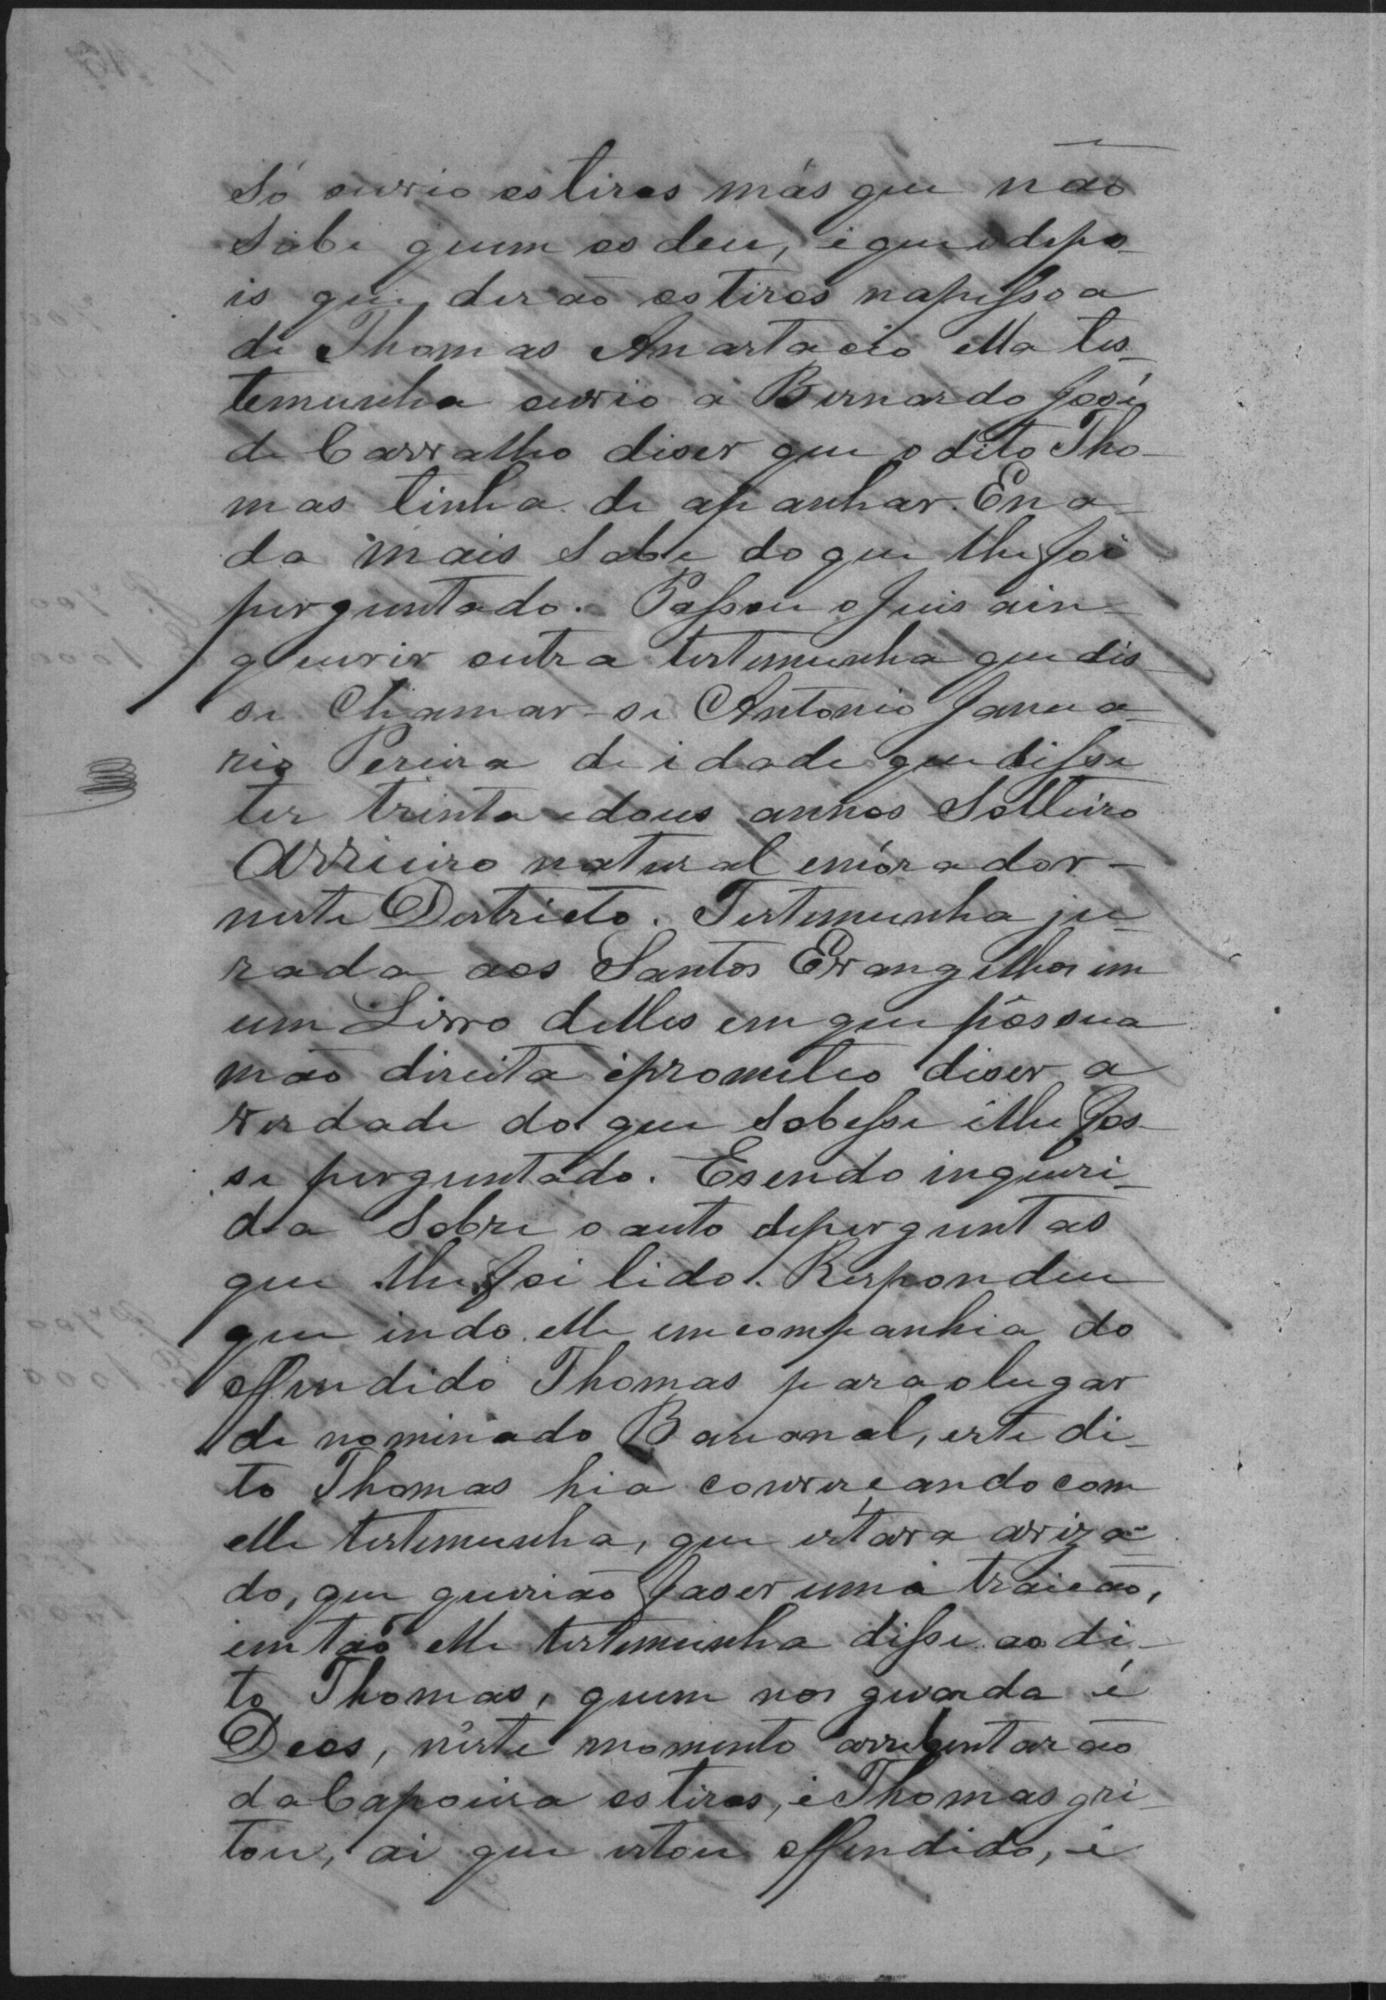 Só ouvio os tiros más que não
sabe quem os deu, e que depo-
is que derão os tiros na pessoa
de Thomas Anastacio ella tes-
temunha ouvio a Bernardo José
de Carvalho diser que o dito Tho-
mas tinha de apanhar. E na-
da mais sabe do que lhe foi
perguntado. Passou o Juis a in-
quirir outra testemunha que dis-
se Chamar-se Antonio Janua-
rio Pereira de idade que disse
ter trinta e dous annos Solteiro
Arrieiro natural e mórador
neste Destricto. Testemunha ju-
rada aos Santos Evangelhos em
um Livro delles em que pôs sua
mão direita e prometeo diser a
verdade do que sobesse e lhe fos-
se perguntado. E sendo inqueri-
da sobre o auto de perguntas
que lhe foi lido. Respondeu
que indo elle em companhia do
offendido Thomas para o lugar
denominado Bananal, este di-
to Thomas hia converçando com
elle testemunha, que estava aviza-
do, que querião faser uma traicão,
emtão elle testemunha disse ao di-
to Thomas, quem nos guarda é
Deos, néste momento arrebentarão
da Capoeira os tiros, e Thomas gri-
tou, ai que estou offendido, e